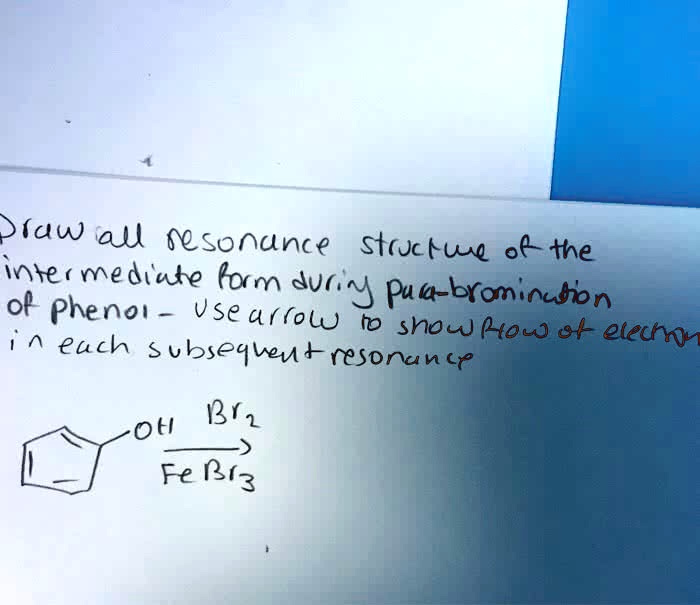 Draw all resonance structure of the
intermediate form during para-bromination
of phenol - Use arrow to show flow of electron
in each subsequent resonance
OH Br2
FeBr3